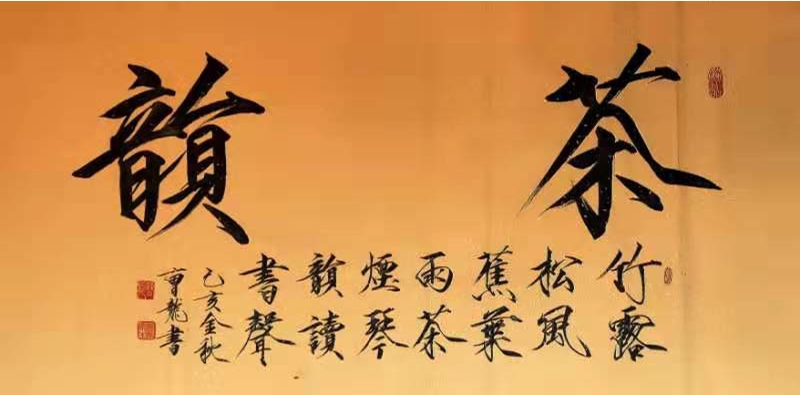 茶韻
竹露
松風
蕉葉
雨茶
煙琴
韻讀
書聲
亥金秋
龍書